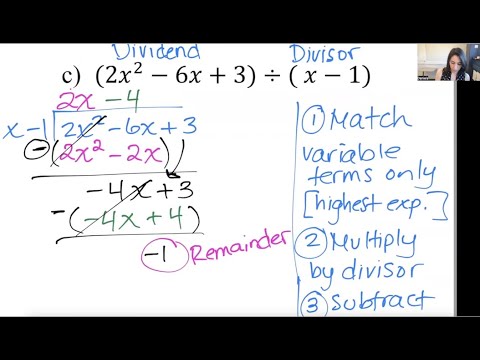 Dividend Divisor
c) (2x² − 6x + 3) ÷ ( x − 1)
2x − 4
x − 1 2x² − 6x + 3
− (2x² − 2x)
− 4x + 3
− (− 4x + 4)
−1 Remainder
① Match
variable
terms only
[highest exp.]
② Multiply
by divisor
③ Subtract